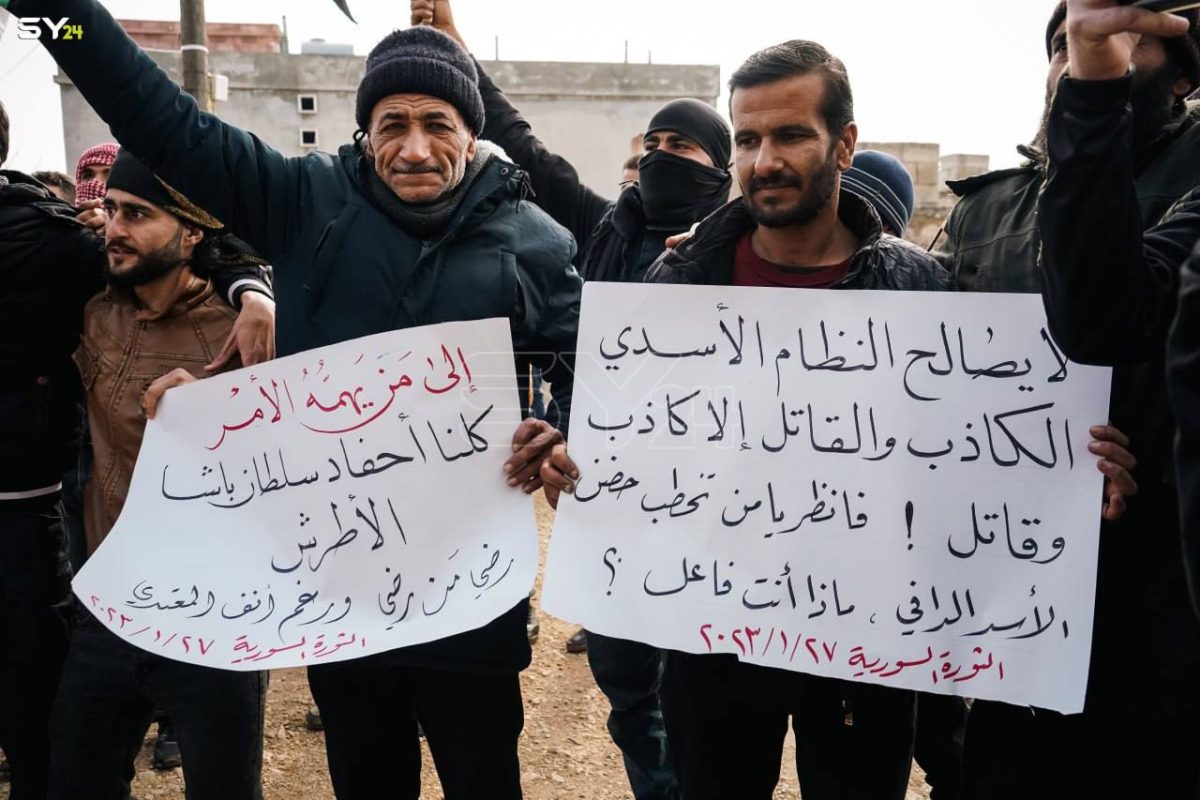 SY24
إلىٰ مَن يَهمُّهُ الأمْرْ
كلنا أحفاد سلطان باشا
الأطرش
رضيَ مَن رضي ورغم أنف المعتدي
الثورة السورية ٢٠٢٣/١/٢٧
لا يصُالح النظام الأسدي
الكاذب والقاتل إلا كاذب
وقاتل ! فانظر يا من تخطب حضن
الأسد الدافي ، ماذا أنت فاعل ؟
الثورة السورية ٢٠٢٣/١/٢٧
SY24